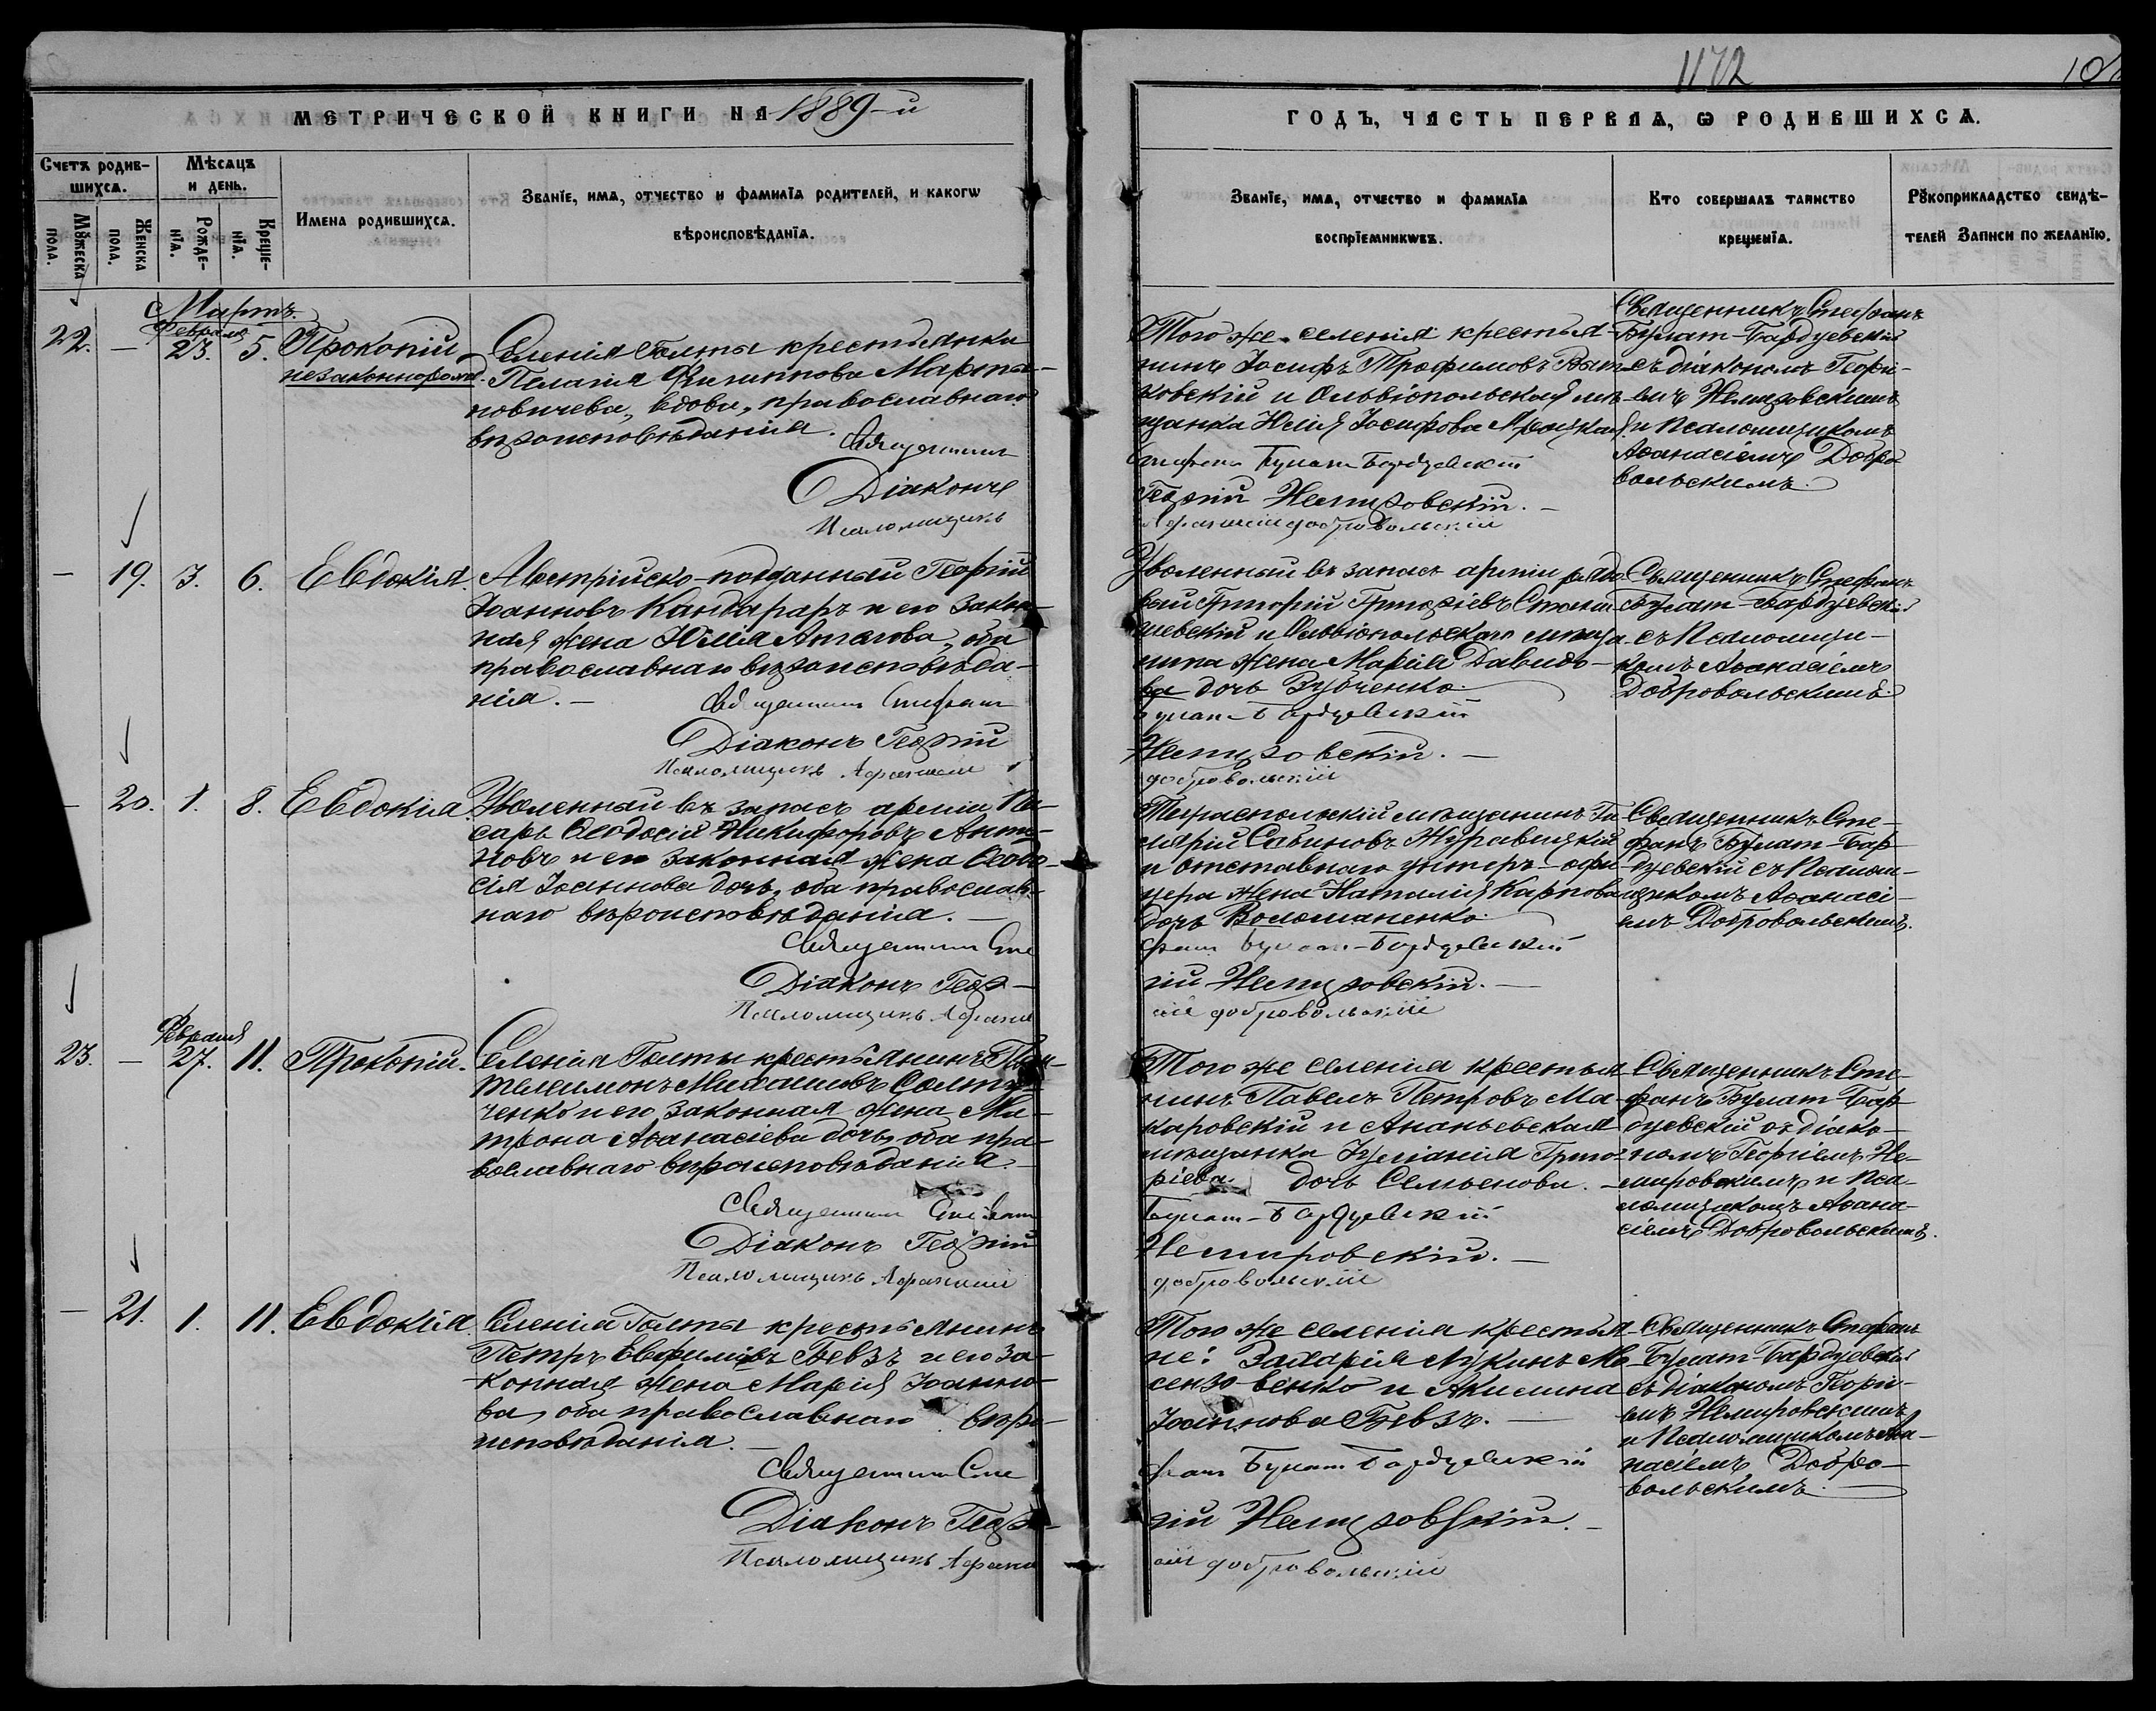 1172
МЕТРИЧЕСКОЙ КНИГИ НА 1889-й
ГОДЪ, ЧАСТЬ ПЕРВАЯ, Ѡ РОДИВШИХСЯ.
Счетъ родив-
шихся.
Мѣсяцъ
и день.
Мꙋжеска
пола.
Женска
пола.
Рожде-
нїя.
Креще-
нїя.
Имена родившихся.
Званїе, имя, отчество и фамилїя родителей, и какогѡ
вѣроисповѣданїя.
Званїе, имя, отчество и фамилїя
воспрїемникѡвъ.
Кто совершалъ таинство
крещенїя.
Рꙋкоприкладство свидѣ-
телей Записи по желанїю.
Мартъ.
22.
—
Февраля
23.
5.
Прокопій
незаконнорожд.
Селенія Голты крестьянка
Пелагія Филиппова Марты-
новичева, вдова, православнаго
вѣроисповѣданія.
Священникъ
Діаконъ
Псаломщикъ
Того же селенія крестья-
нинъ Іосифъ Трофимовъ
ковскій и Ольвіопольская мѣ-
щанка Юлія Іосифова
Стефанъ Булат-Бардзевскій
Георгій Немировскій. —
Афанасій Добровольскій
Священникъ Стефанъ
Булат-Бардзевскій
съ діакономъ Георгі-
емъ Немировскимъ
и Псаломщикомъ
Аѳанасіемъ Добро-
вольскимъ.
—
19.
3.
6.
Евдокія.
Австрійско-подданный Георгій
Іоанновъ Кандараръ и его закон-
ная жена Юлія Агапова, оба
православнаго вѣроисповѣда-
нія. —
Священникъ Стефанъ
Діаконъ Георгій
Псаломщикъ Афанасій
Уволенный въ запасъ арміи рядо-
вый Григорій Григоріевъ Стани-
шевскій и Ольвіопольскаго мѣща-
нина жена Марія Давидо-
ва дочь Зубченко.
Булат-Бардзевскій
Немировскій. —
Добровольскій
Священникъ Стефанъ
Булат-Бардзевскій
съ Псаломщи-
комъ Аѳанасіемъ
Добровольскимъ.
—
20.
1.
8.
Евдокія.
Уволенный въ запасъ арміи Пи-
сарь Ѳеодосій Никифоровъ Анти-
повъ и его законная жена Ѳеодо-
сія Іоаннова дочь, оба православ-
наго вѣроисповѣданія. —
Священникъ Сте
Діаконъ Геор-
Псаломщикъ Афанас
Тираспольскій мѣщанинъ Ги-
лярій Савиновъ Журавицкій
и отставнаго унтеръ-офи-
цера жена Наталія Карпова
дочь Воломаненко.
фанъ Булат-Бардзевскій
гій Немировскій. —
ій Добровольскій
Священникъ Сте-
фанъ Булат-Бар-
дзевскій съ Псалом-
щикомъ Аѳанасі-
емъ Добровольскимъ.
23.
—
Февраля
27.
11.
Прокопій.
Селенія Голты крестьянинъ Пан-
телеимонъ Михаиловъ Солты-
ченко и его законная жена Ма-
трона Аѳанасіева дочь, оба пра-
вославнаго вѣроисповѣданія. —
Священникъ Стефанъ
Діаконъ Георгій
Псаломщикъ Афанасій
Того же селенія крестья-
нинъ Павелъ Петровъ Ма-
каровскій и Ананьевская
мѣщанка Іуліанія Григо-
ріева дочь Семенова. —
Булат-Бардзевскій
Немировскій. —
Добровольскій
Священникъ Сте-
фанъ Булат-Бар-
дзевскій съ діако-
номъ Георгіемъ Не-
мировскимъ и Пса-
ломщикомъ Аѳана-
сіемъ Добровольскимъ.
—
21.
1.
11.
Евдокія.
Селенія Голты крестьянинъ
Петръ Евфиміевъ Бевзъ и его за-
конная жена Марія Іоанно-
ва, оба православнаго вѣро-
исповѣданія. —
Священникъ Сте
Діаконъ Геор-
Псаломщикъ Афанас
Того же селенія крестья-
не: Захарія Лукинъ Мо-
сензовенко и Акилина
Іоаннова Бевзъ. —
фанъ Булат Бардзевскій
гій Немировскій. —
ій Добровольскій
Священникъ Стефанъ
Булат-Бардзевскій
съ діакономъ Георгі-
емъ Немировскимъ
и Псаломщикомъ Аѳа-
насіемъ Добро-
вольскимъ. —